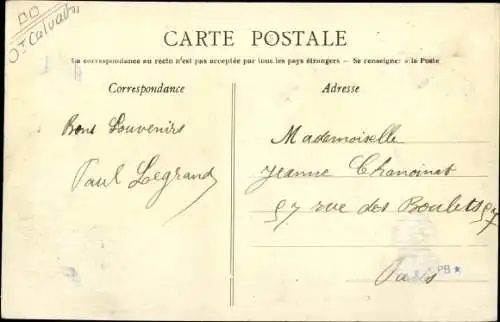 Dt Calvados
CARTE POSTALE
La correspondance au recto n'est pas acceptée par tous les pays étrangers — Se renseigner à la Poste
Correspondance
Adresse
Bons Souvenirs
Paul Legrand
Mademoiselle
Jeanne Chanoinat
97 rue des Boulets 97
Paris
PB ★